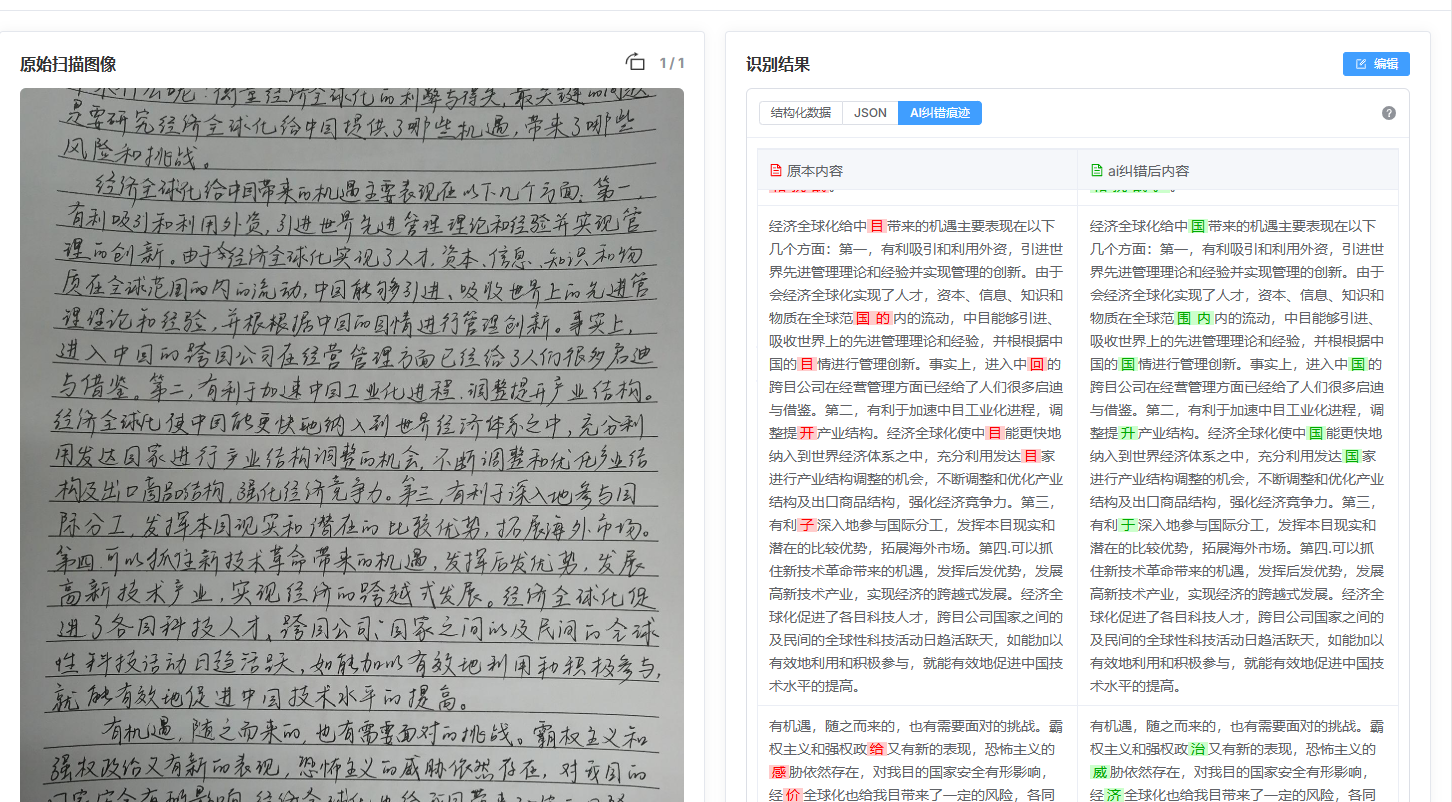 原始扫描图像
1 / 1
是要研究经济全球化给中国提供了哪些机遇，带来了哪些
风险和挑战。
经济全球化给中国带来的机遇主要表现在以下几个方面：第一，
有利吸引和利用外资，引进世界先进管理理论和经验并实现管
理的创新。由于经济全球化实现了人才，资本、信息、知识和物
质在全球范围的内的流动，中国能够引进、吸收世界上的先进管
理理论和经验，并根根据中国的国情进行管理创新。事实上，
进入中国的跨国公司在经营管理方面已经给了人们很多启迪
与借鉴。第二，有利于加速中国工业化进程，调整提升产业结构。
经济全球化使中国能更快地纳入到世界经济体系之中，充分利
用发达国家进行产业结构调整的机会，不断调整和优化产业结
构及出口商品结构，强化经济竞争力。第三，有利于深入地参与国
际分工，发挥本国现实和潜在的比较优势，拓展海外市场。
第四.可以抓住新技术革命带来的机遇，发挥后发优势，发展
高新技术产业，实现经济的跨越式发展。经济全球化促
进了各国科技人才、跨国公司、国家之间以及民间的全球
性科技活动日趋活跃，如能加以有效地利用和积极参与，
就能有效地促进中国技术水平的提高。
有机遇，随之而来的，也有需要面对的挑战。霸权主义和
强权政给又有新的表现，恐怖主义的威胁依然存在，对我国的
识别结果
编辑
结构化数据 JSON AI纠错痕迹
?
原本内容
经济全球化给中目带来的机遇主要表现在以下
几个方面：第一，有利吸引和利用外资，引进世
界先进管理理论和经验并实现管理的创新。由于
会经济全球化实现了人才，资本、信息、知识和
物质在全球范国的内的流动，中目能够引进、
吸收世界上的先进管理理论和经验，并根根据中
国的目情进行管理创新。事实上，进入中回的
跨目公司在经营管理方面已经给了人们很多启迪
与借鉴。第二，有利于加速中目工业化进程，调
整提开产业结构。经济全球化使中目能更快地
纳入到世界经济体系之中，充分利用发达目家
进行产业结构调整的机会，不断调整和优化产业
结构及出口商品结构，强化经济竟争力。第三，
有利子深入地参与国际分工，发挥本目现实和
潜在的比较优势，拓展海外市场。第四.可以抓
住新技术革命带来的机遇，发挥后发优势，发展
高新技术产业，实现经济的跨越式发展。经济全
球化促进了各目科技人才，跨目公司国家之间的
及民间的全球性科技活动日趋活跃天，如能加以
有效地利用和积极参与，就能有效地促进中国技
术水平的提高。
有机遇，随之而来的，也有需要面对的挑战。霸
权主义和强权政给又有新的表现，恐怖主义的
感胁依然存在，对我目的国家安全有形影响，
经价全球化也给我目带来了一定的风险，各同
ai纠错后内容
经济全球化给中国带来的机遇主要表现在以下
几个方面：第一，有利吸引和利用外资，引进世
界先进管理理论和经验并实现管理的创新。由于
会经济全球化实现了人才，资本、信息、知识和
物质在全球范围内内的流动，中目能够引进、
吸收世界上的先进管理理论和经验，并根根据中
国的国情进行管理创新。事实上，进入中国的
跨目公司在经营管理方面已经给了人们很多启迪
与借鉴。第二，有利于加速中目工业化进程，调
整提升产业结构。经济全球化使中国能更快地
纳入到世界经济体系之中，充分利用发达国家
进行产业结构调整的机会，不断调整和优化产业
结构及出口商品结构，强化经济竟争力。第三，
有利于深入地参与国际分工，发挥本目现实和
潜在的比较优势，拓展海外市场。第四.可以抓
住新技术革命带来的机遇，发挥后发优势，发展
高新技术产业，实现经济的跨越式发展。经济全
球化促进了各目科技人才，跨目公司国家之间的
及民间的全球性科技活动日趋活跃天，如能加以
有效地利用和积极参与，就能有效地促进中国技
术水平的提高。
有机遇，随之而来的，也有需要面对的挑战。霸
权主义和强权政治又有新的表现，恐怖主义的
威胁依然存在，对我目的国家安全有形影响，
经济全球化也给我目带来了一定的风险，各同